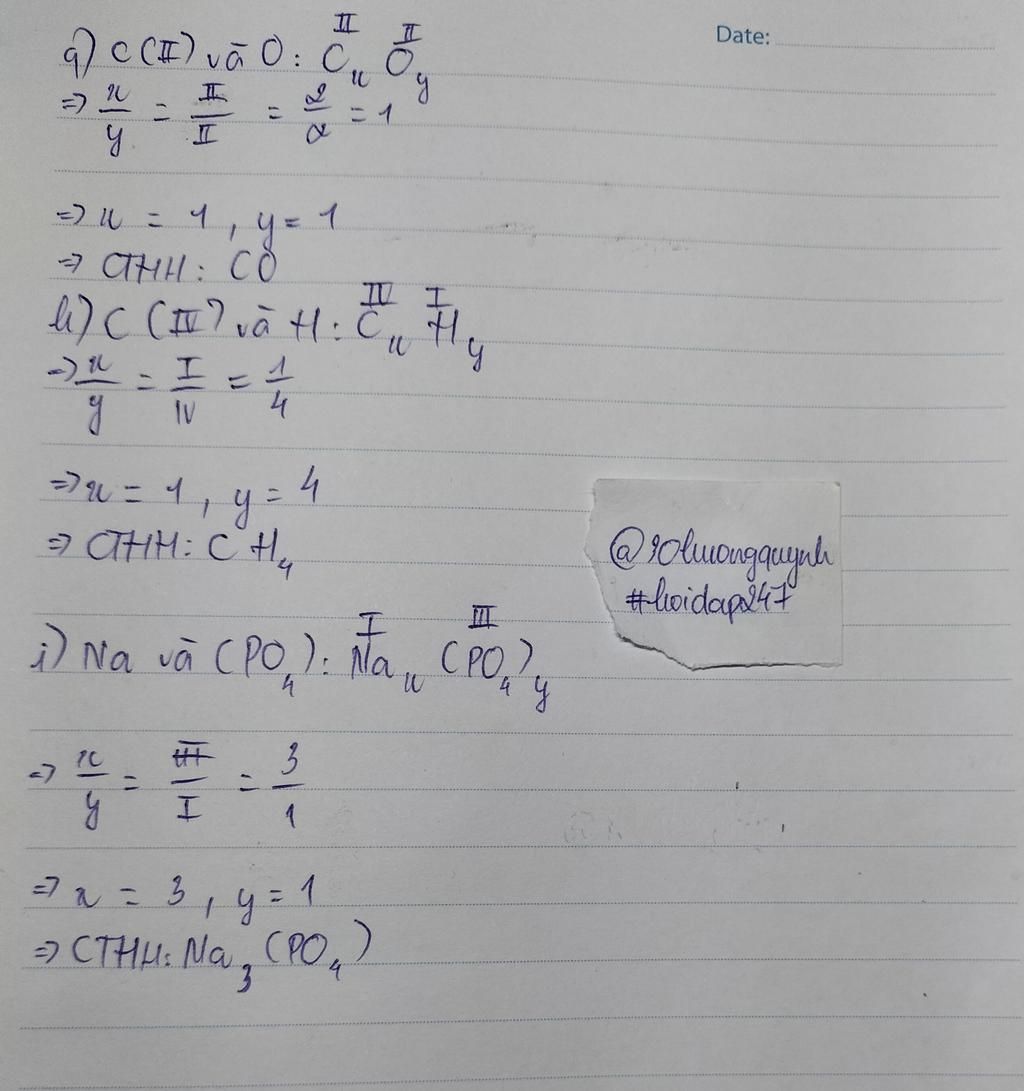 Date:
g) C (II) và O: C_x^{II} O_y^{II}
=> x/y = II/II = 2/2 = 1
=> x = 1, y = 1
=> CTHH: CO
h) C (IV) và H: C_x^{IV} H_y^{I}
=> x/y = I/IV = 1/4
=> x = 1, y = 4
=> CTHH: CH₄
@90luongquynh
#hoidap247
i) Na và (PO₄): Na_x^{I} (PO₄)_y^{III}
=> x/y = III/I = 3/1
=> x = 3, y = 1
=> CTHH: Na₃(PO₄)